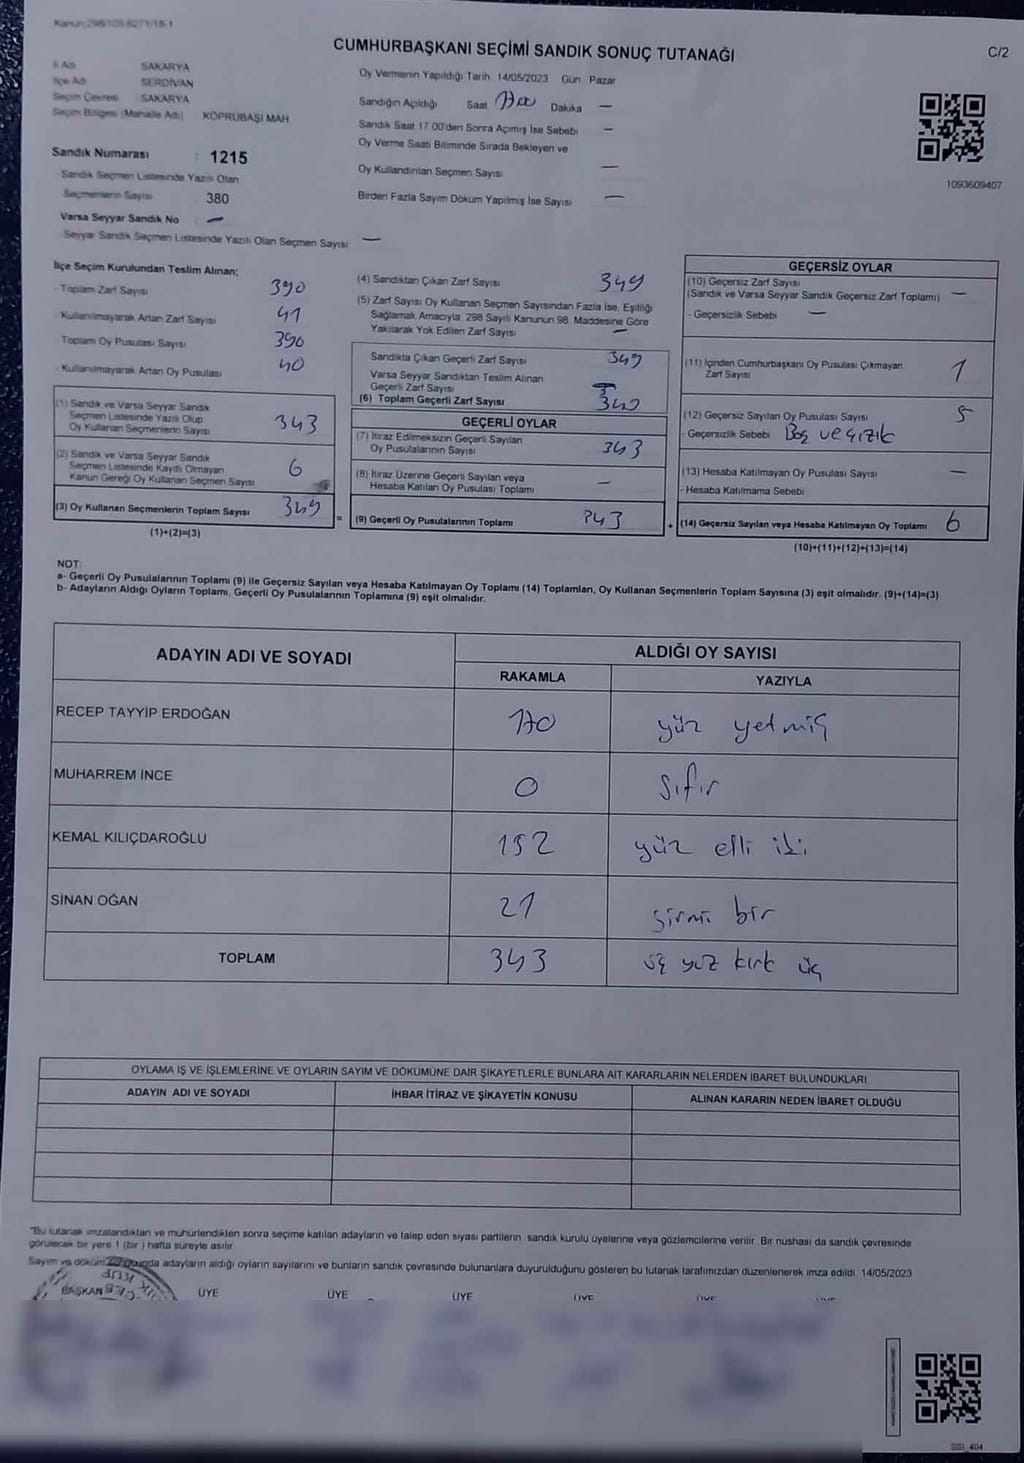 Kanun 298/105 6271/18-1
CUMHURBAŞKANI SEÇİMİ SANDIK SONUÇ TUTANAĞI
C/2
İl Adı SAKARYA
İlçe Adı SERDİVAN
Seçim Çevresi SAKARYA
Seçim Bölgesi (Mahalle Adı) KÖPRÜBAŞI MAH.
Sandık Numarası : 1215
Sandık Seçmen Listesinde Yazılı Olan
Seçmenlerin Sayısı : 380
Varsa Seyyar Sandık No : —
Seyyar Sandık Seçmen Listesinde Yazılı Olan Seçmen Sayısı —
Oy Vermenin Yapıldığı Tarih 14/05/2023 Gün Pazar
Sandığın Açıldığı Saat 17.00 Dakika —
Sandık Saat 17:00'den Sonra Açımış İse Sebebi —
Oy Verme Saati Bitiminde Sırada Bekleyen ve
Oy Kullandırılan Seçmen Sayısı —
Birden Fazla Sayım Döküm Yapılmış İse Sayısı —
1093609407
İlçe Seçim Kurulundan Teslim Alınan;
- Toplam Zarf Sayısı 390
- Kullanılmayarak Artan Zarf Sayısı 41
- Toplam Oy Pusulası Sayısı 390
- Kullanılmayarak Artan Oy Pusulası 40
(1) Sandık ve Varsa Seyyar Sandık
Seçmen Listesinde Yazılı Olup
Oy Kullanan Seçmenlerin Sayısı 343
(2) Sandık ve Varsa Seyyar Sandık
Seçmen Listesinde Kayıtlı Olmayan
Kanun Gereği Oy Kullanan Seçmen Sayısı 6
(3) Oy Kullanan Seçmenlerin Toplam Sayısı 349
(1)+(2)=(3)
(4) Sandıktan Çıkan Zarf Sayısı 349
(5) Zarf Sayısı Oy Kullanan Seçmen Sayısından Fazla İse, Eşitliği
Sağlamak Amacıyla, 298 Sayılı Kanunun 98. Maddesine Göre
Yakılarak Yok Edilen Zarf Sayısı —
Sandıkta Çıkan Geçerli Zarf Sayısı 349
Varsa Seyyar Sandıktan Teslim Alınan
Geçerli Zarf Sayısı
(6) Toplam Geçerli Zarf Sayısı 349
GEÇERLİ OYLAR
(7) İtiraz Edilmeksizin Geçerli Sayılan
Oy Pusulalarının Sayısı 343
(8) İtiraz Üzerine Geçerli Sayılan veya
Hesaba Katılan Oy Pusulası Toplamı —
= (9) Geçerli Oy Pusulalarının Toplamı 343
GEÇERSİZ OYLAR
(10) Geçersiz Zarf Sayısı —
(Sandık ve Varsa Seyyar Sandık Geçersiz Zarf Toplamı)
- Geçersizlik Sebebi —
(11) İçinden Cumhurbaşkanı Oy Pusulası Çıkmayan
Zarf Sayısı 1
(12) Geçersiz Sayılan Oy Pusulası Sayısı 5
- Geçersizlik Sebebi Boş ve çizik
(13) Hesaba Katılmayan Oy Pusulası Sayısı —
- Hesaba Katılmama Sebebi
+ (14) Geçersiz Sayılan veya Hesaba Katılmayan Oy Toplamı 6
(10)+(11)+(12)+(13)=(14)
NOT:
a- Geçerli Oy Pusulalarının Toplamı (9) ile Geçersiz Sayılan veya Hesaba Katılmayan Oy Toplamı (14) Toplamları, Oy Kullanan Seçmenlerin Toplam Sayısına (3) eşit olmalıdır. (9)+(14)=(3)
b- Adayların Aldığı Oyların Toplamı, Geçerli Oy Pusulalarının Toplamına (9) eşit olmalıdır.
ADAYIN ADI VE SOYADI
ALDIĞI OY SAYISI
RAKAMLA YAZIYLA
RECEP TAYYİP ERDOĞAN 170 yüz yetmiş
MUHARREM İNCE 0 sıfır
KEMAL KILIÇDAROĞLU 152 yüz elli iki
SİNAN OĞAN 21 yirmi bir
TOPLAM 343 üç yüz kırk üç
OYLAMA İŞ VE İŞLEMLERİNE VE OYLARIN SAYIM VE DÖKÜMÜNE DAİR ŞİKAYETLERLE BUNLARA AİT KARARLARIN NELERDEN İBARET BULUNDUKLARI
ADAYIN ADI VE SOYADI İHBAR İTİRAZ VE ŞİKAYETİN KONUSU ALINAN KARARIN NEDEN İBARET OLDUĞU
"Bu tutanak imzalandıktan ve mühürlendikten sonra seçime katılan adayların ve talep eden siyasi partilerin sandık kurulu üyelerine veya gözlemcilerine verilir. Bir nüshası da sandık çevresinde
görülecek bir yere 1 (bir) hafta süreyle asılır.
Sayım ve döküm sonucunda adayların aldığı oyların sayılarını ve bunların sandık çevresinde bulunanlara duyurulduğunu gösteren bu tutanak tarafımızdan düzenlenerek imza edildi. 14/05/2023
BAŞKAN ÜYE ÜYE ÜYE ÜYE ÜYE